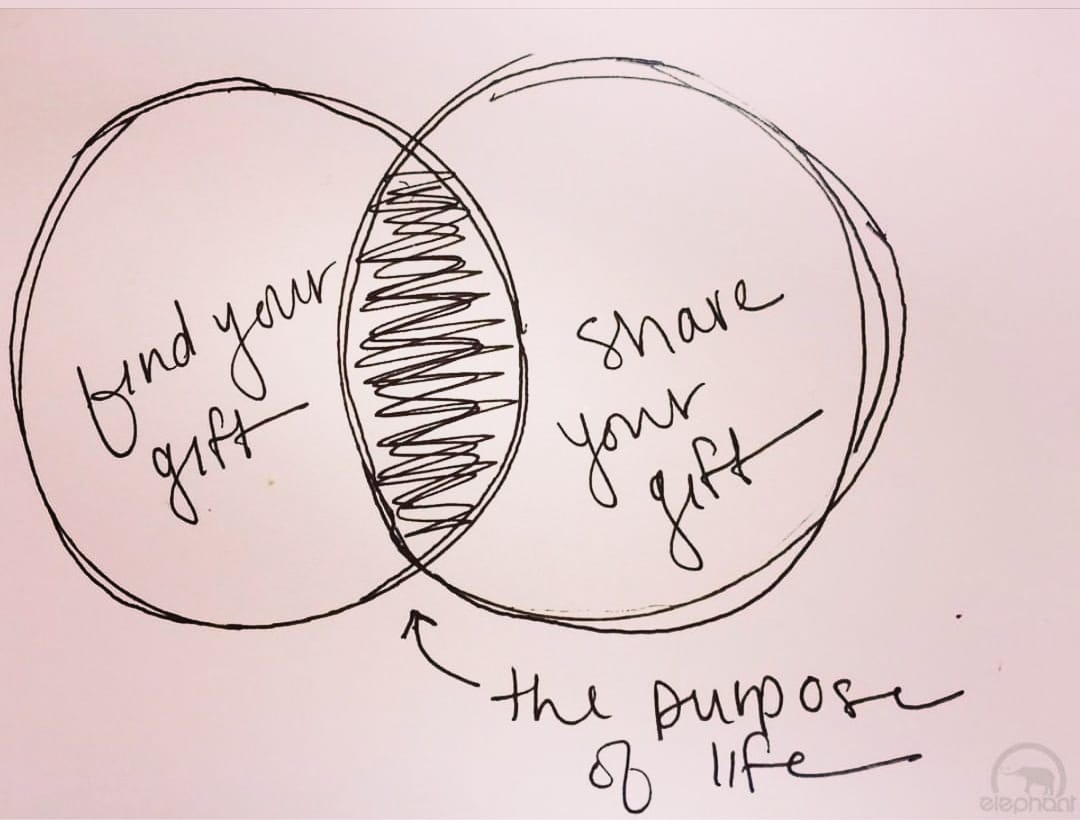 find your
gift
share
your
gift
the purpose
of life
elephant